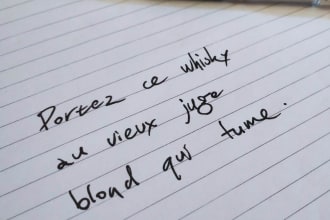 Portez ce whisky
au vieux juge
blond qui fume.